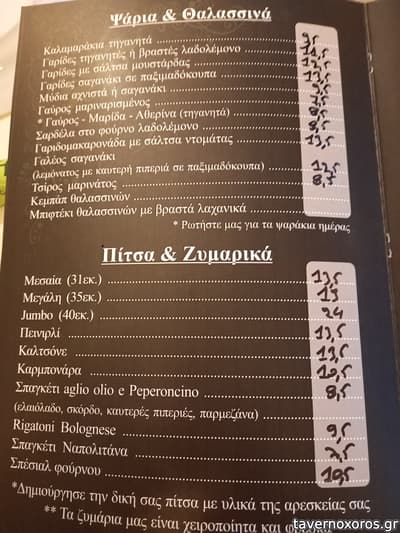 Ψάρια & Θαλασσινά
Καλαμαράκια τηγανητά
Γαρίδες τηγανητές ή βραστές λαδολέμονο
Γαρίδες με σάλτσα μουστάρδας
Γαρίδες σαγανάκι σε παξιμαδόκουπα
Μύδια αχνιστά ή σαγανάκι
Γαύρος μαριναρισμένος
* Γαύρος - Μαρίδα - Αθερίνα (τηγανητά)
Σαρδέλα στο φούρνο λαδολέμονο
Γαριδομακαρονάδα με σάλτσα ντομάτας 13,5
Γαλέος σαγανάκι
(λεμόνατος με καυτερή πιπεριά σε παξιμαδόκουπα)
Τσίρος μαρινάτος
Κεμπάπ θαλασσινών
Μπιφτέκι θαλασσινών με βραστά λαχανικά
* Ρωτήστε μας για τα ψαράκια ημέρας
Πίτσα & Ζυμαρικά
Μεσαία (31εκ.) 13,5
Μεγάλη (35εκ.) 15
Jumbo (40εκ.) 24
Πεινιρλί 13,5
Καλτσόνε 13,5
Καρμπονάρα 10,5
Σπαγκέτι aglio olio e Peperoncino 8,5
(ελαιόλαδο, σκόρδο, καυτερές πιπεριές, παρμεζάνα)
Rigatoni Bolognese 9,5
Σπαγκέτι Ναπολιτάνα 7,5
Σπέσιαλ φούρνου 10,5
*Δημιούργησε την δική σας πίτσα με υλικά της αρεσκείας σας
** Τα ζυμάρια μας είναι χειροποίητα και
tavernoxoros.gr